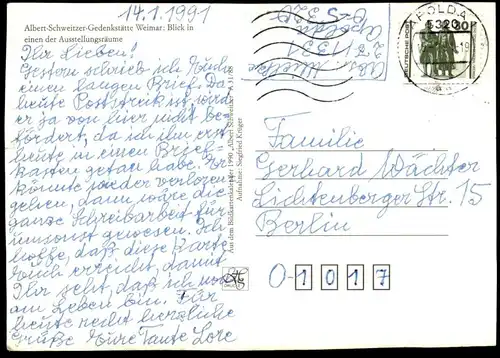 14.1.1991
Albert-Schweitzer-Gedenkstätte Weimar: Blick in
einen der Ausstellungsräume
Ihr Lieben!
Gestern schrieb ich Euch
einen langen Brief. Da
heute Poststreik ist, wird
er ja von hier nicht be-
fördert, da ich ihn erst
heute in einen Brief-
kasten getan habe. Er
könnte verloren
gehen, dann wäre die
ganze Schreibarbeit für
umsonst gewesen. Ich
hoffe, daß diese Karte
Euch erreicht, damit
Ihr seht, daß ich noch
am Leben bin. Für
heute recht herzliche
Grüße Eure Tante Lore
Aus dem Bildkartenkalender 1990 „Albert Schweitzer"
Aufnahme: Siegfried Krüger
Apolda
5320
APOLDA
5320
DEUTSCHE POST
Familie
Gerhard Wächter
Lichtenberger Str. 15
Berlin
O-1017